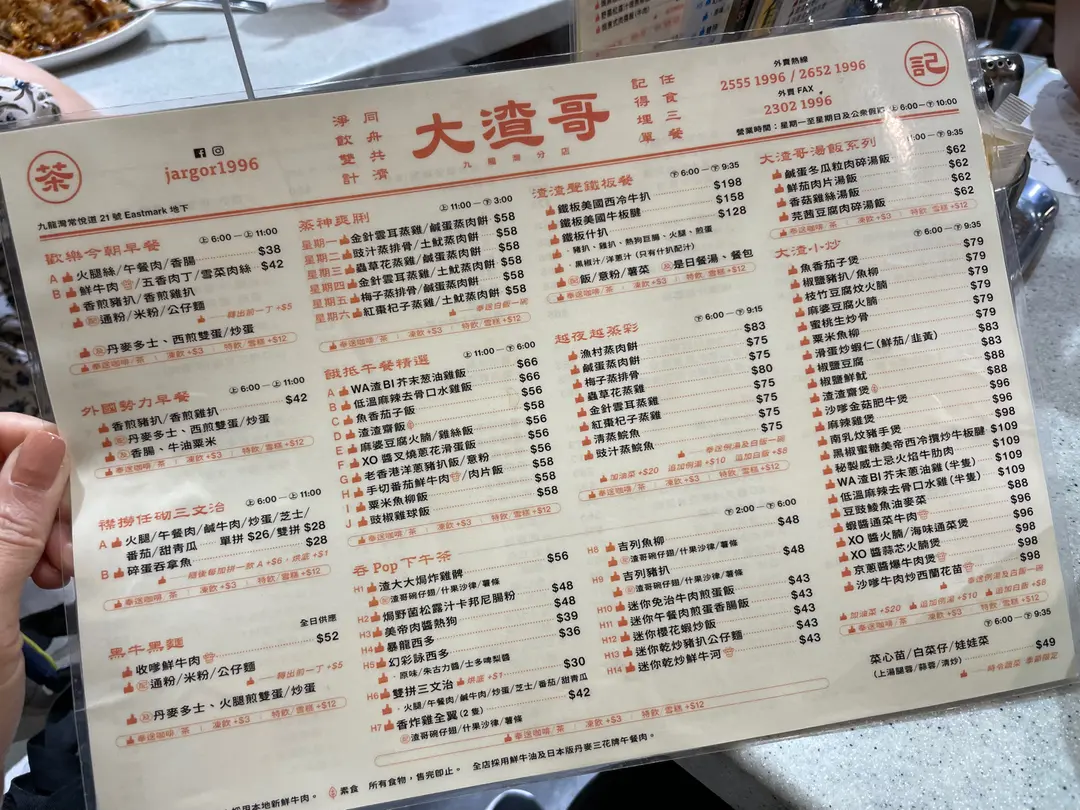 茶
jargor1996
九龍灣常悅道 21 號 Eastmark 地下
淨飲雙計
同舟共濟
大渣哥
九龍灣分店
記得埋單
任食三餐
外賣熱線
2555 1996 / 2652 1996
外賣 FAX
2302 1996
營業時間：星期一至星期日及公眾假期 上 6:00—下 10:00
記
歡樂今朝早餐
上 6:00 — 上 11:00
A 火腿絲/午餐肉/香腸 $38
B 鮮牛肉/五香肉丁/雪菜肉絲 $42
香煎豬扒/香煎雞扒
配 通粉/米粉/公仔麵
轉出前一丁 +$5
及 丹麥多士、西煎雙蛋/炒蛋
奉送咖啡/茶 | 凍飲 +$3 | 特飲/雪糕 +$12
外國勢力早餐
上 6:00 — 上 11:00
香煎豬扒/香煎雞扒 $42
及 丹麥多士、西煎雙蛋/炒蛋
香腸、牛油粟米
奉送咖啡/茶 | 凍飲 +$3 | 特飲/雪糕 +$12
襟撈任砌三文治
上 6:00 — 上 11:00
A 火腿/午餐肉/鹹牛肉/炒蛋/芝士/
番茄/甜青瓜 單拼 $26/雙拼 $28
B 碎蛋吞拿魚 $28
隨後每加拼一款 A +$6，烘底 +$1
奉送咖啡/茶 | 凍飲 +$3 | 特飲/雪糕 +$12
黑牛黑麵
全日供應
收嗲鮮牛肉 $52
配 通粉/米粉/公仔麵
轉出前一丁 +$5
及 丹麥多士、火腿煎雙蛋/炒蛋
奉送咖啡/茶 | 凍飲 +$3 | 特飲/雪糕 +$12
蒸神爽利
上 11:00 — 下 3:00
星期一 金針雲耳蒸雞/鹹蛋蒸肉餅 $58
星期二 豉汁蒸排骨/土魷蒸肉餅 $58
星期三 蟲草花蒸雞/鹹蛋蒸肉餅 $58
星期四 金針雲耳蒸雞/土魷蒸肉餅 $58
星期五 梅子蒸排骨/鹹蛋蒸肉餅 $58
星期六 紅棗杞子蒸雞/土魷蒸肉餅 $58
奉送白飯一碗
凍飲 +$3 | 特飲/雪糕 +$12
餓抵午餐精選
上 11:00 — 下 6:00
A WA渣BI芥末葱油雞飯 $66
B 低溫麻辣去骨口水雞飯 $66
C 魚香茄子飯 $56
D 渣渣齋飯 $58
E 麻婆豆腐火腩/雞絲飯 $56
F XO 醬叉燒蔥花滑蛋飯 $56
G 老香港洋蔥豬扒飯/意粉 $56
H 手切番茄鮮牛肉/肉片飯 $58
I 粟米魚柳飯 $58
J 豉椒雞球飯 $58
奉送咖啡/茶 | 凍飲 +$3 | 特飲/雪糕 +$12
吞 Pop 下午茶
下 2:00 — 下 6:00
H1 渣大大焗炸雞髀 $56
配 渣哥碗仔翅/什果沙律/薯條
H2 焗野菌松露汁卡邦尼腸粉 $48
H3 美帝肉醬熱狗 $48
H4 暴龍西多 $39
H5 幻彩詠西多 $36
・原味/朱古力醬/士多啤梨醬
H6 雙拼三文治 烘底 +$1 $30
・火腿/午餐肉/鹹牛肉/炒蛋/芝士/番茄/甜青瓜
H7 香炸雞全翼 (2 隻) $42
配 渣哥碗仔翅/什果沙律/薯條
H8 吉列魚柳 $48
配 渣哥碗仔翅/什果沙律/薯條
H9 吉列豬扒 $48
配 渣哥碗仔翅/什果沙律/薯條
H10 迷你免治牛肉煎蛋飯 $43
H11 迷你午餐肉煎蛋香腸飯 $43
H12 迷你櫻花蝦炒飯 $43
H13 迷你乾炒豬扒公仔麵 $43
H14 迷你乾炒鮮牛河 $43
奉送咖啡/茶 | 凍飲 +$3 | 特飲/雪糕 +$12
渣渣聲鐵板餐
下 6:00 — 下 9:35
鐵板美國西冷牛扒 $198
鐵板美國牛板腱 $158
鐵板什扒 $128
・豬扒、雞扒、熱狗巨腸、火腿、煎蛋
・黑椒汁/洋蔥汁 (只有什扒配汁)
配 飯/意粉/薯菜 及 是日餐湯、餐包
奉送咖啡/茶 | 凍飲 +$3 | 特飲/雪糕 +$12
越夜越蒸彩
下 6:00 — 下 9:15
漁村蒸肉餅 $83
鹹蛋蒸肉餅 $75
梅子蒸排骨 $75
蟲草花蒸雞 $80
金針雲耳蒸雞 $75
紅棗杞子蒸雞 $75
清蒸鯇魚 $75
豉汁蒸鯇魚 $75
奉送例湯及白飯一碗
加油菜 +$20 追加例湯 +$10 追加白飯 +$8
奉送咖啡/茶 | 凍飲 +$3 | 特飲/雪糕 +$12
大渣哥湯飯系列
下 6:00 — 下 9:35
鹹蛋冬瓜粒肉碎湯飯 $62
鮮茄肉片湯飯 $62
香菇雞絲湯飯 $62
芫茜豆腐肉碎湯飯 $62
奉送咖啡/茶 | 凍飲 +$3 | 特飲/雪糕 +$12
大渣小炒
下 6:00 — 下 9:35
魚香茄子煲 $79
椒鹽豬扒/魚柳 $79
枝竹豆腐炆火腩 $79
麻婆豆腐火腩 $79
蜜桃生炒骨 $79
粟米魚柳 $79
滑蛋炒蝦仁 (鮮茄/韭黃) $83
椒鹽豆腐 $83
椒鹽鮮魷 $88
渣渣齋煲 $88
沙嗲金菇肥牛煲 $96
麻辣雞煲 $96
南乳炆豬手煲 $98
黑椒蜜糖美帝西冷攢炒牛板腱 $109
秘製威士忌火焰牛肋肉 $109
WA渣BI芥末葱油雞 (半隻) $109
低溫麻辣去骨口水雞 (半隻) $109
豆豉鯪魚油麥菜 $88
蝦醬通菜牛肉 $96
XO 醬火腩/海味通菜煲 $96
XO 醬蒜芯火腩煲 $98
京蔥醬爆牛肉煲 $98
沙嗲牛肉炒西蘭花苗 $98
奉送例湯及白飯一碗
加油菜 +$20 追加例湯 +$10 追加白飯 +$8
奉送咖啡/茶 | 凍飲 +$3 | 特飲/雪糕 +$12
下 6:00 — 下 9:35
菜心苗/白菜仔/娃娃菜 $49
(上湯腿蓉/蒜蓉/清炒)
時令蔬菜 季節限定
採用本地新鮮牛肉。 素食 所有食物，售完即止。 全店採用鮮牛油及日本版丹麥三花牌午餐肉。